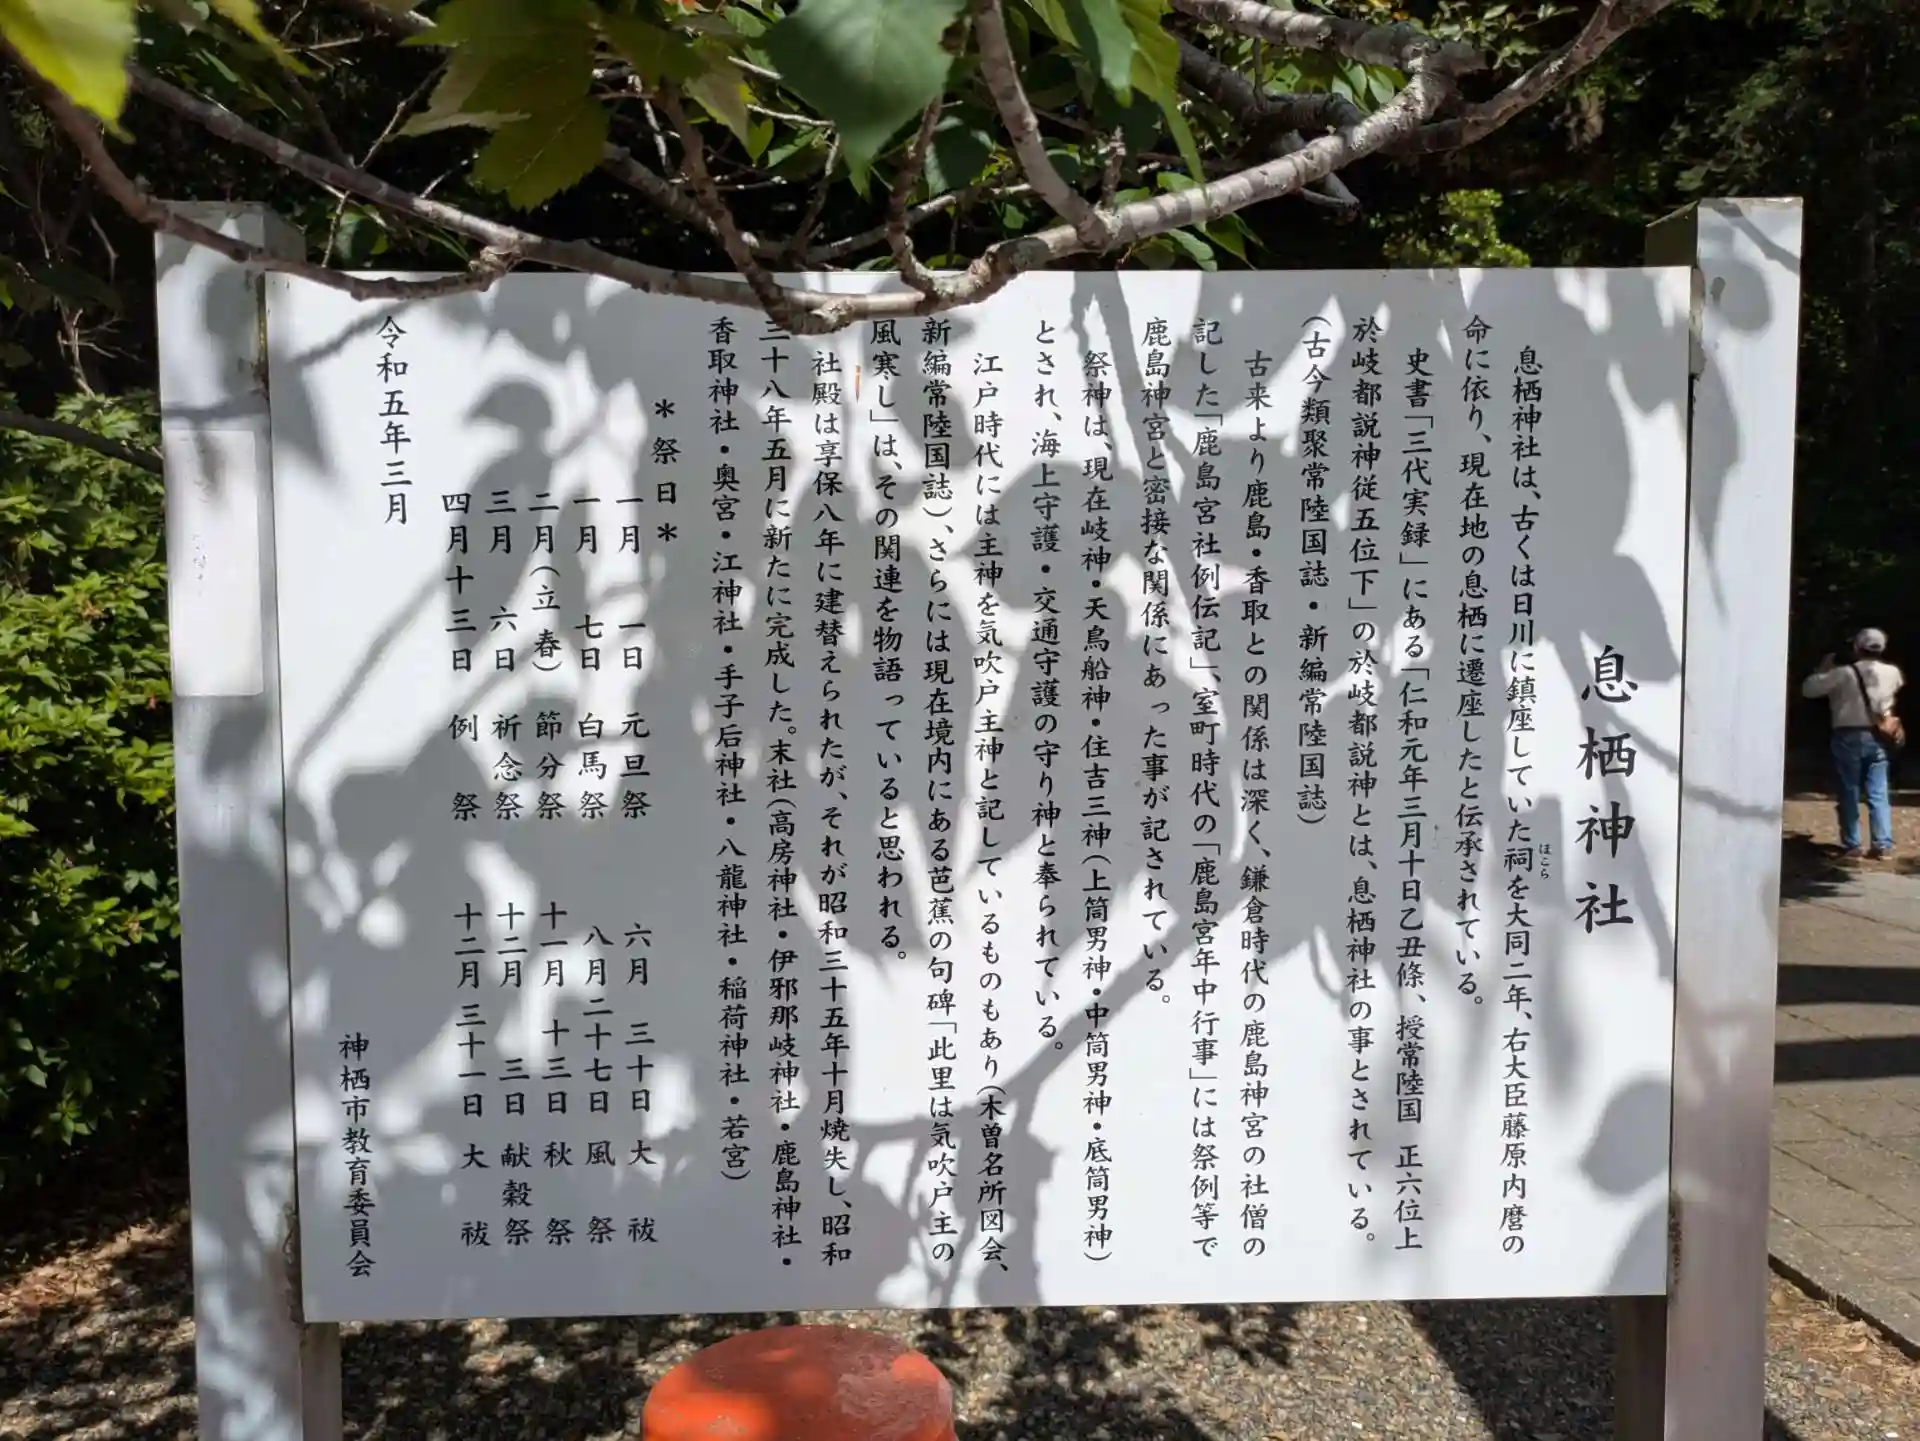 息栖神社
息栖神社は、古くは日川に鎮座していた祠を大同二年、右大臣藤原内麿の
ほこら
命に依り、現在地の息栖に遷座したと伝承されている。
史書「三代実録」にある「仁和元年三月十日乙丑條、授常陸国 正六位上
於岐都説神従五位下」の於岐都説神とは、息栖神社の事とされている。
(古今類聚常陸国誌・新編常陸国誌)
古来より鹿島・香取との関係は深く、鎌倉時代の鹿島神宮の社僧の
記した「鹿島宮社例伝記」、室町時代の「鹿島宮年中行事」には祭例等で
鹿島神宮と密接な関係にあった事が記されている。
祭神は、現在岐神・天鳥船神・住吉三神(上筒男神・中筒男神・底筒男神)
とされ、海上守護・交通守護の守り神と奉られている。
江戸時代には主神を気吹戸主神と記しているものもあり(木曽名所図会、
新編常陸国誌)、さらには現在境内にある芭蕉の句碑「此里は気吹戸主の
風寒し」は、その関連を物語っていると思われる。
社殿は享保八年に建替えられたが、それが昭和三十五年十月焼失し、昭和
三十八年五月に新たに完成した。末社(高房神社・伊邪那岐神社・鹿島神社・
香取神社・奥宮・江神社・手子后神社・八龍神社・稲荷神社・若宮)
＊祭日＊
一月 一日 元旦祭 六月 三十日 大祓
一月 七日 白馬祭 八月二十七日 風祭
二月(立春) 節分祭 十一月 十三日 秋祭
三月 六日 祈念祭 十二月 三日 献穀祭
四月十三日 例祭 十二月 三十一日 大祓
令和五年三月
神栖市教育委員会